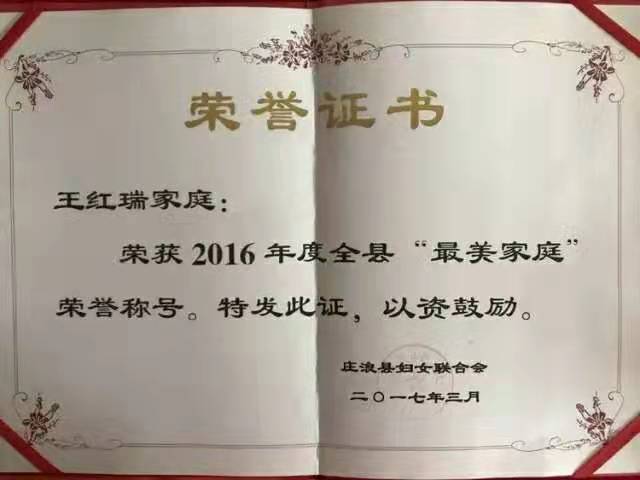 荣誉证书
王红瑞家庭：
荣获2016年度全县“最美家庭”
荣誉称号。特发此证，以资鼓励。
庄浪县妇女联合会
二〇一七年三月